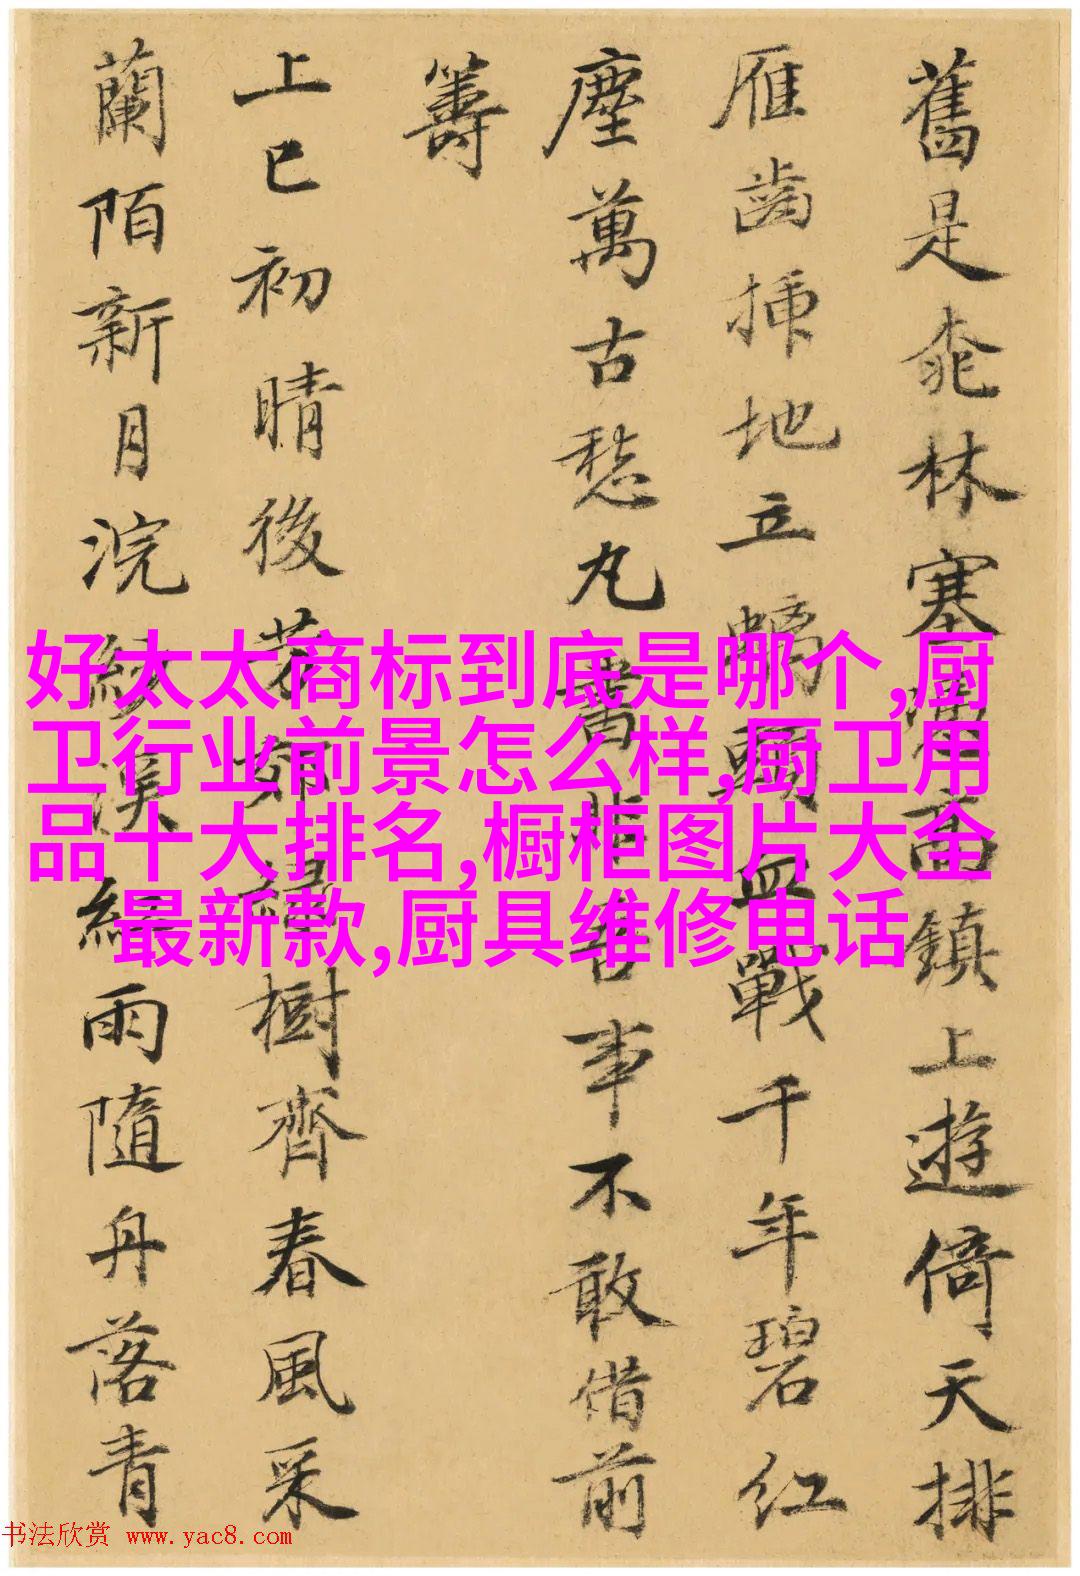 舊是桃林塞嘴高鎮上遊倚天排
雁齒插地立螭頭血戰千年碧紅
塵萬古愁丸書非吾事不敢借前
籌
上巳初晴後茅廬樹齊春風采
蘭陌新月浣紗溪細雨隨丹落青
好太太商标到底是哪个,厨
卫行业前景怎么样,厨卫用
品十大排名,橱柜图片大全
最新款,厨具维修电话
书法欣赏 www.yac8.com